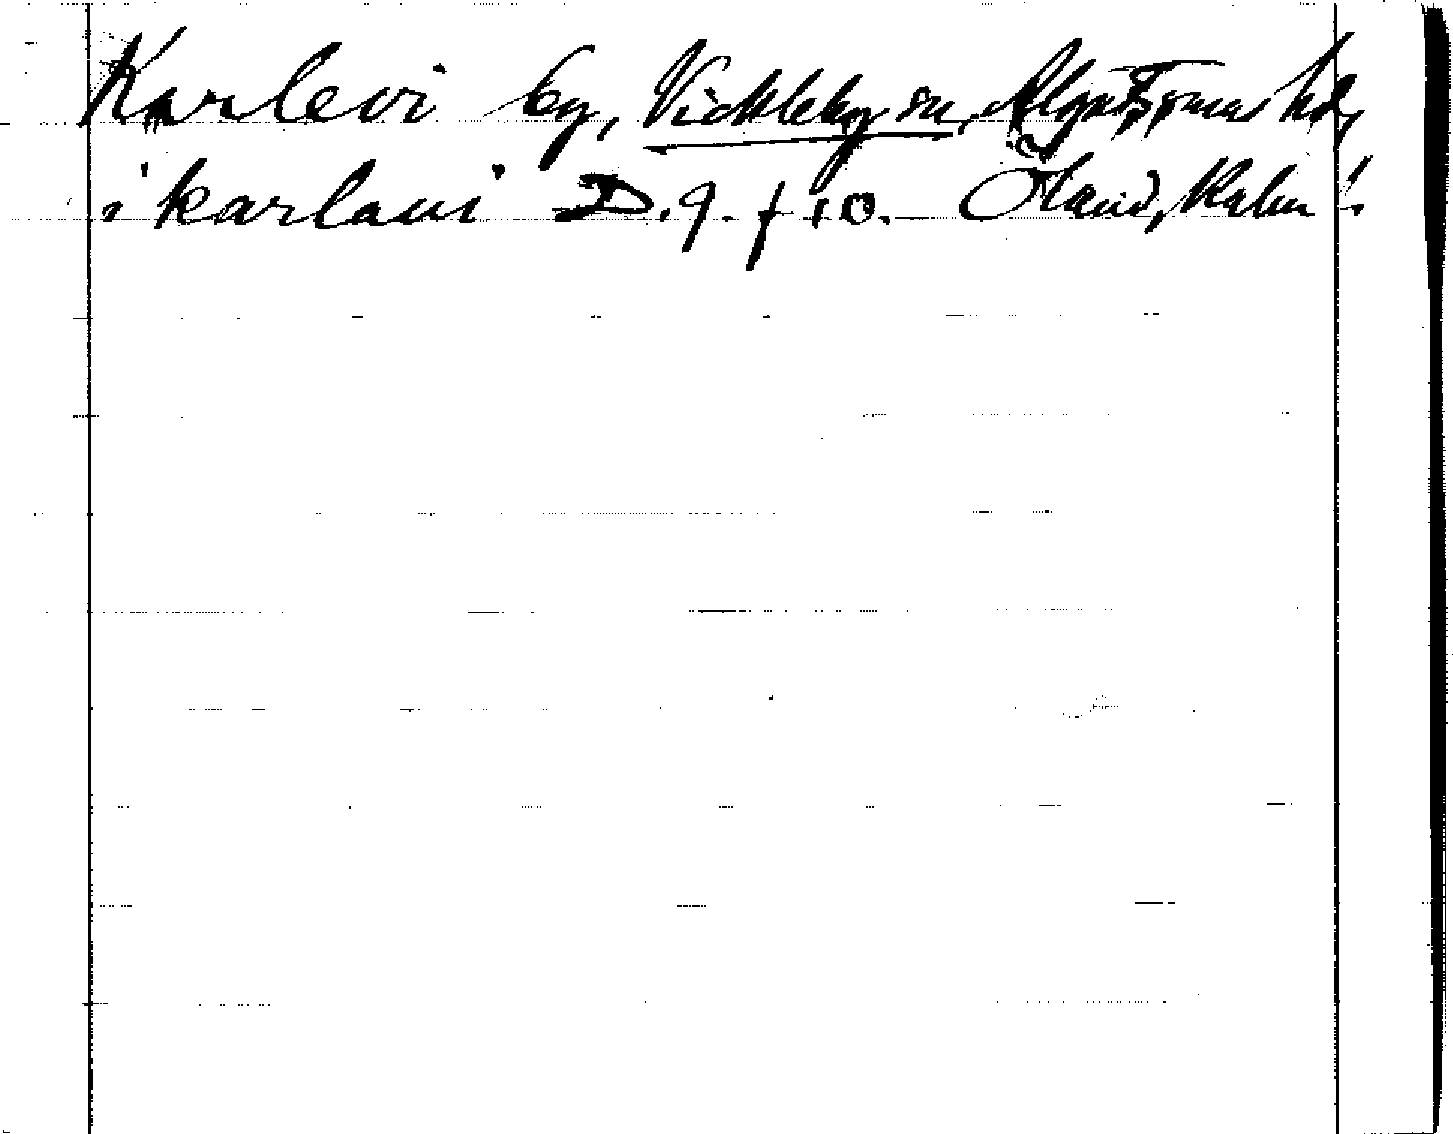 Karlevi by, Vickleby sn, Algutsrums hd,
i karlaui D. 9. f 10. Öland, Kalm l.